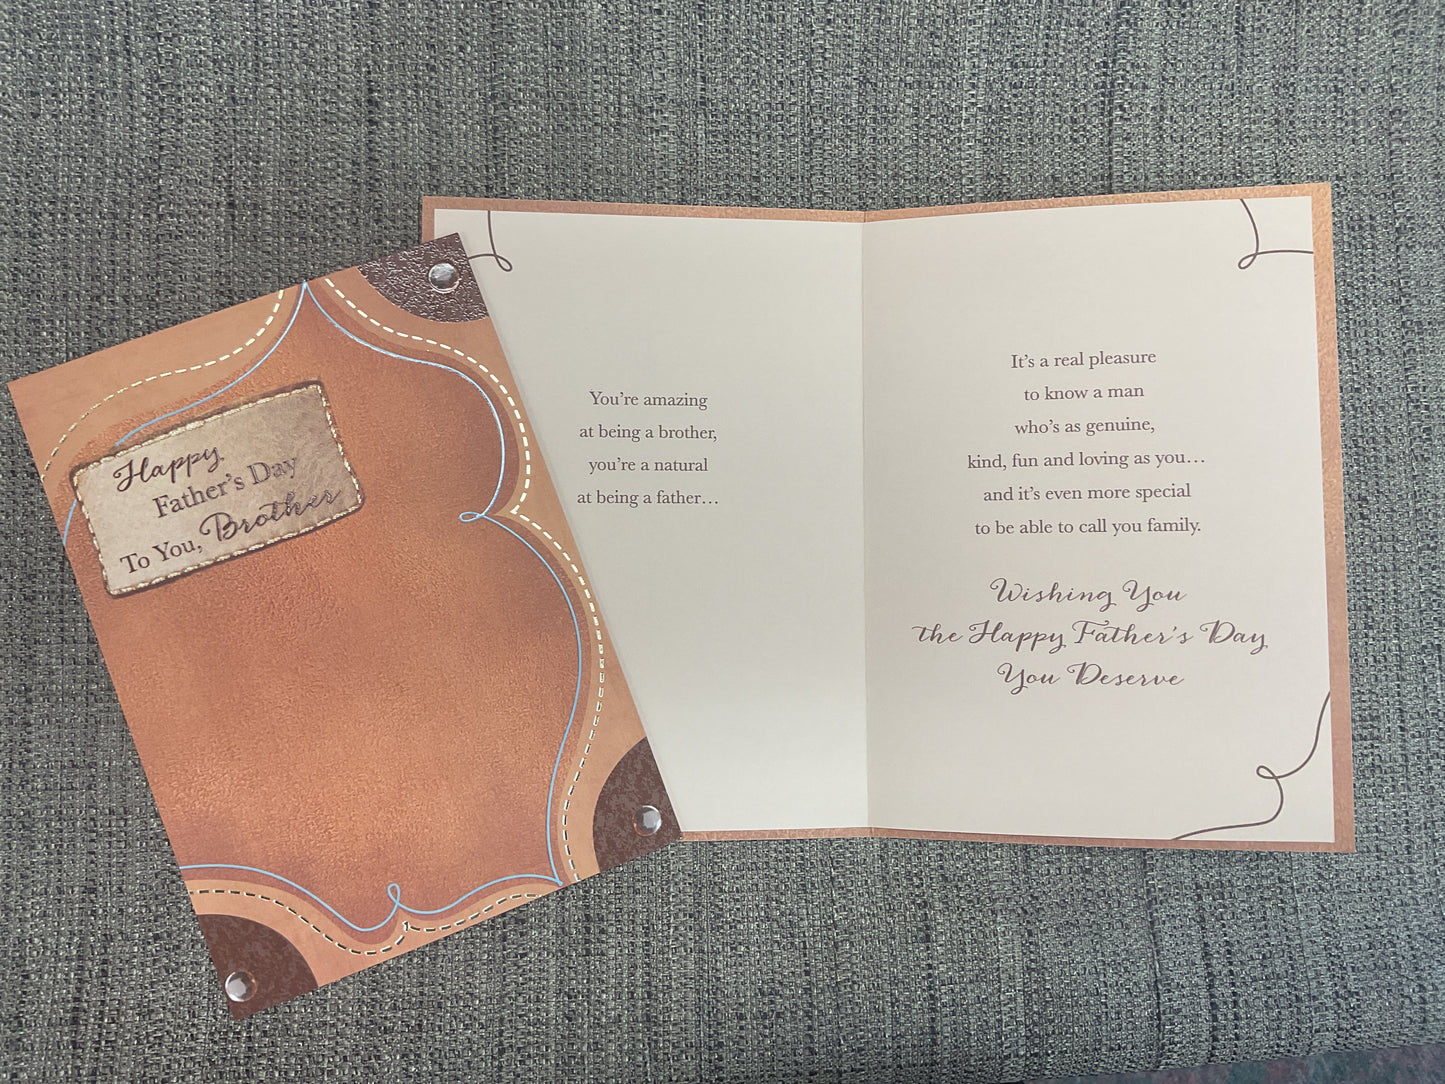 Happy
Father's Day
To You, Brother
You're amazing
at being a brother,
you're a natural
at being a father…
It's a real pleasure
to know a man
who's as genuine,
kind, fun and loving as you…
and it's even more special
to be able to call you family.
Wishing You
the Happy Father's Day
You Deserve